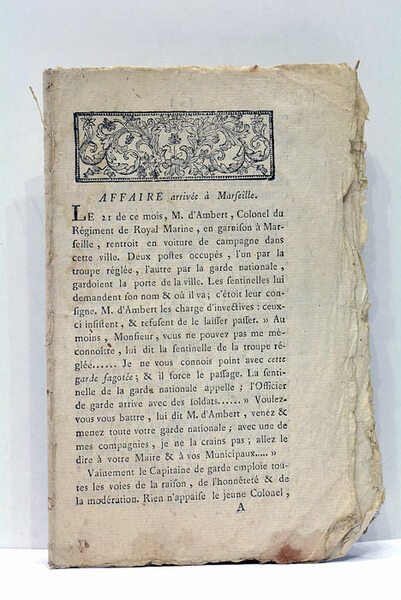 AFFAIRE arrivée à Marseille.
LE 21 de ce mois, M. d'Ambert, Colonel du
Régiment de Royal Marine, en garnison à Mar-
seille, rentroit en voiture de campagne dans
cette ville. Deux postes occupés, l'un par la
troupe réglée, l'autre par la garde nationale,
gardoient la porte de la ville. Les sentinelles lui
demandent son nom & où il va; c'étoit leur con-
signe. M. d'Ambert les charge d'invectives : ceux-
ci insistent, & refusent de le laisser passer. » Au
moins, Monsieur, vous ne pouvez pas me mé-
connoître, lui dit la sentinelle de la troupe ré-
glée...... Je ne vous connois point avec cette
garde fagotée; & il force le passage. La senti-
nelle de la garde nationale appelle; l'Officier
de garde arrive avec des soldats...... » Voulez-
vous vous battre, lui dit M. d'Ambert, venez &
menez toute votre garde nationale; avec une de
mes compagnies, je ne la crains pas; allez le
dire à votre Maire & à vos Municipaux..... »
Vainement le Capitaine de garde emploie tou-
tes les voies de la raison, de l'honnêteté & de
la modération. Rien n'appaise le jeune Colonel,
A